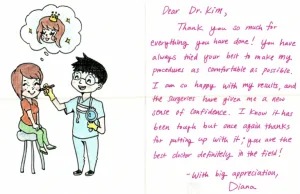 Dear Dr. Kim,
Thank you so much for
everything you have done! You have
always tried your best to make my
procedures as comfortable as possible.
I am so happy with my results, and
the surgeries have given me a new
sense of confidence. I know it has
been tough but once again thanks
for putting up with it; you are the
best doctor definitely in the field!
-With big appreciation,
Diana